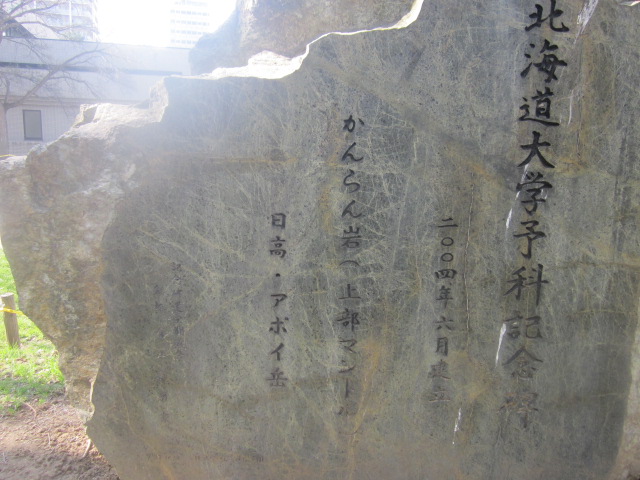 北海道大学予科記念碑
二〇〇四年六月建立
かんらん岩(上部マントル
日高・アポイ岳